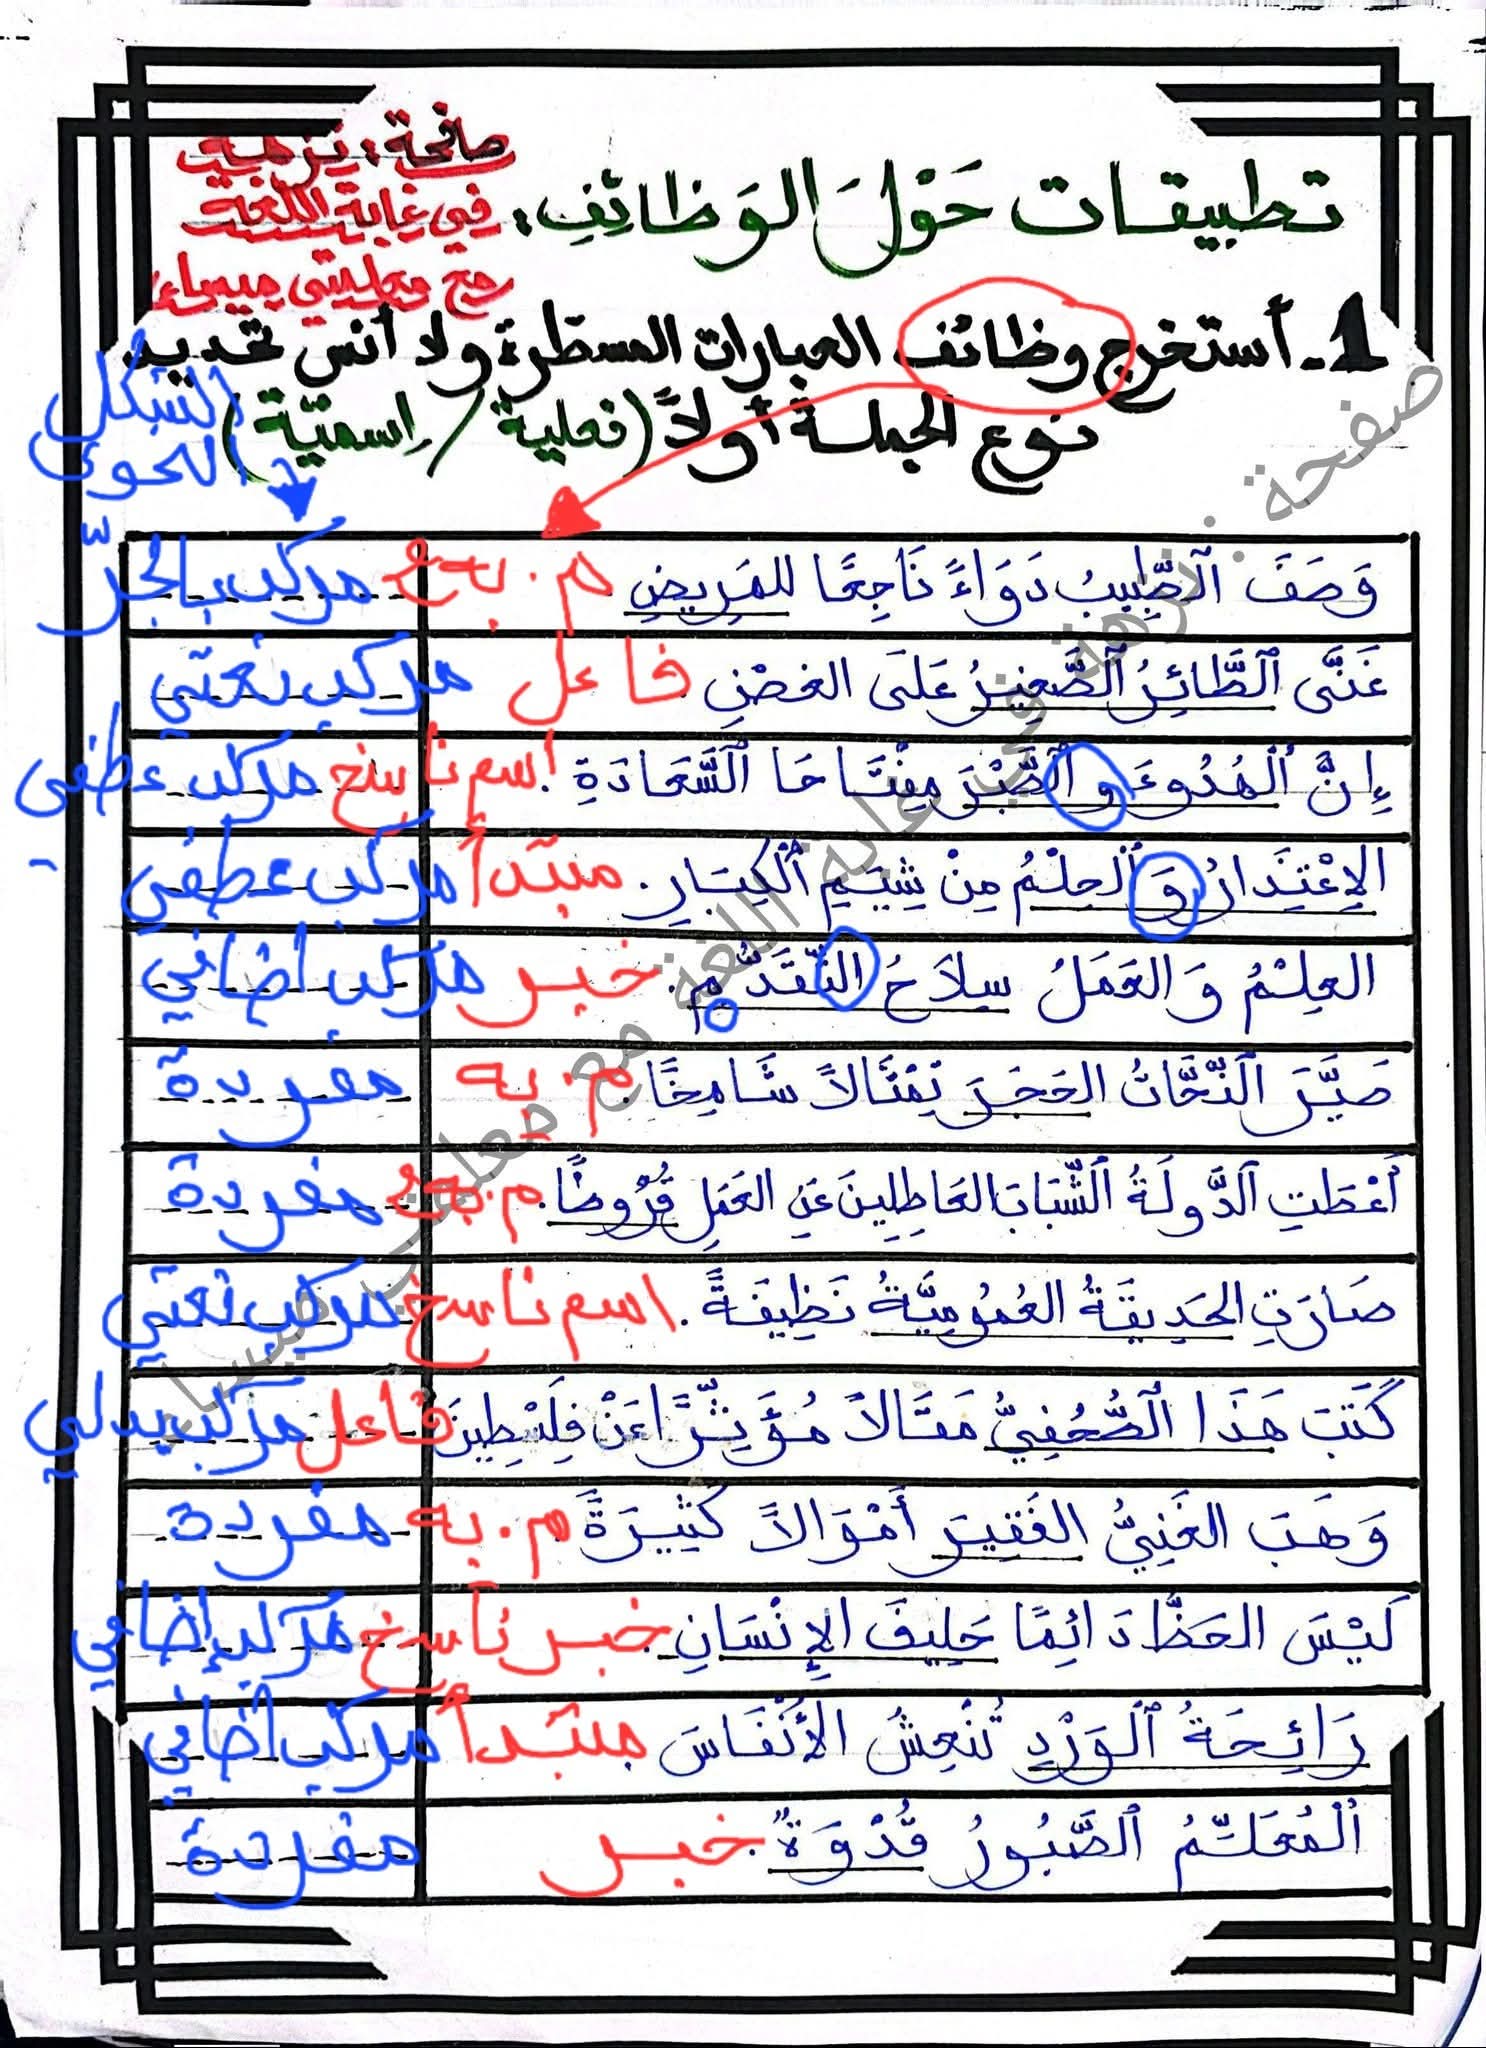 صفحة: نزهة
في غابة اللغة
مع معلمتي ميساء
تطبيقات حَوْلَ الوَظائِفِ:
1- أستخرج وظائف العبارات المسطرة ولا أنس تحديد
نوع الجملة أولاً (فعلية / إسميّة)
الشكل
النحوي
وَصَفَ ٱلطَّبِيبُ دَوَاءً نَاجِعًا للمَرِيضِ م. به2 مركب بالجرّ
غَنَّى ٱلطَّائِرُ ٱلصَّغِيرُ عَلَى الغصْنِ فاعل مركب نعتي
إِنَّ ٱلْهُدُوءَ و ٱلصَّبْرَ مِفْتَاحَا ٱلسَّعَادَةِ. اسم ناسخ مركب عطفي
الإِعْتِذَارُ وَ ٱلحِلْمُ مِنْ شِيَمِ ٱلْكِبَارِ. مبتدأ مركب عطفي
العِلْمُ وَ العَمَلُ سِلاَحُ التَّقَدُّمِ. خبر مركب اضافي
صَيَّرَ ٱلنَّحَّاتُ الحَجَرَ تِمْثَالاً شَامِخًا. م. به مفردة
أَعْطَتِ ٱلدَّولَةُ ٱلشَّبَابَ العَاطِلِينَ عَنِ العَمَلِ قُرُوضًا. م. به2 مفردة
صَارَتِ الحَدِيقَةُ العُمُومِيَّةُ نَظِيفَةً. اسم ناسخ مركب نعتي
كَتَبَ هَذَا ٱلصُّحُفِيُّ مَقَالاً مُؤَثِّرًا عَنْ فِلَسْطِينَ فاعل مركب بدلي
وَهَبَ الغَنِيُّ الفَقِيرَ أَمْوَالاً كَثِيرَةً م. به مفردة
لَيْسَ الحَظُّ دَائِمًا حَلِيفَ الإِنْسَانِ. خبر ناسخ مركب إضافي
رَائِحَةُ ٱلوَرْدِ تُنْعِشُ الأَنْفَاسَ مبتدأ مركب اضافي
ٱلمُعَلِّمُ ٱلصَّبُورُ قُدْوَةٌ. خبر مفردة
صفحة: نزهة في غابة اللغة مع معلمتي ميساء